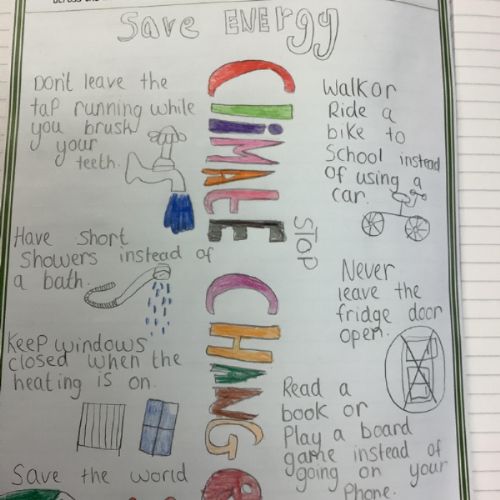 Save ENERGY
Don't leave the
tap running while
you brush
your
teeth.
Have short
showers instead of
a bath.
Keep windows
closed when the
heating is on.
Save the world
CLIMATE CHANG
STOP
Walk or
Ride a
bike to
School instead
of using a
car.
Never
leave the
fridge door
open.
Read a
book or
Play a board
game instead of
going on your
Phone.